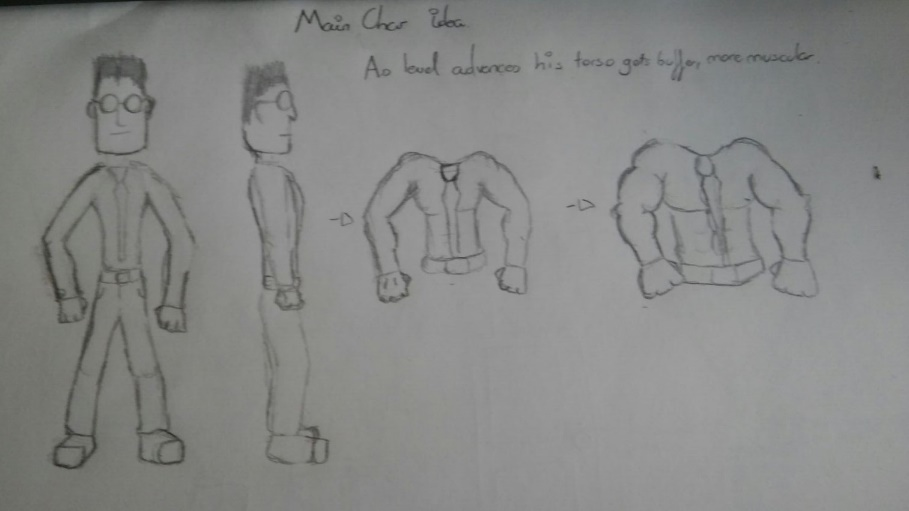 Main Char idea.
As level advances his torso gets buffer, more muscular.